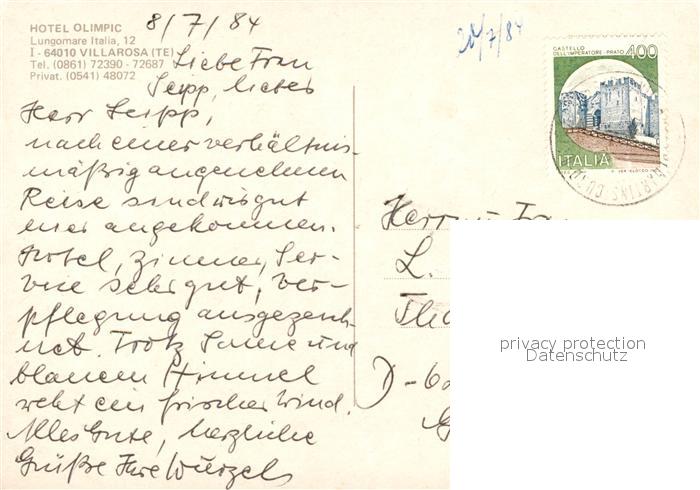 HOTEL OLIMPIC
Lungomare Italia, 12
I - 64010 VILLAROSA (TE)
Tel. (0861) 72390 - 72687
Privat. (0541) 48072
8/7/84
Liebe Frau
Seipp, lieber
Herr Seipp,
nach einer verhältnis-
mäßig angenehmen
Reise sind wir gut
hier angekommen.
Hotel, Zimmer, Ser-
vice sehr gut, Ver-
pflegung ausgezeich-
net. Trotz Sonne und
blauem Himmel
weht ein frischer Wind.
Alles Gute, herzliche
Grüße Ihre Würzels
20/7/84
CASTELLO
DELL'IMPERATORE - PRATO
400
ITALIA
Herrn u. Frau
L.
D-6
privacy protection
Datenschutz